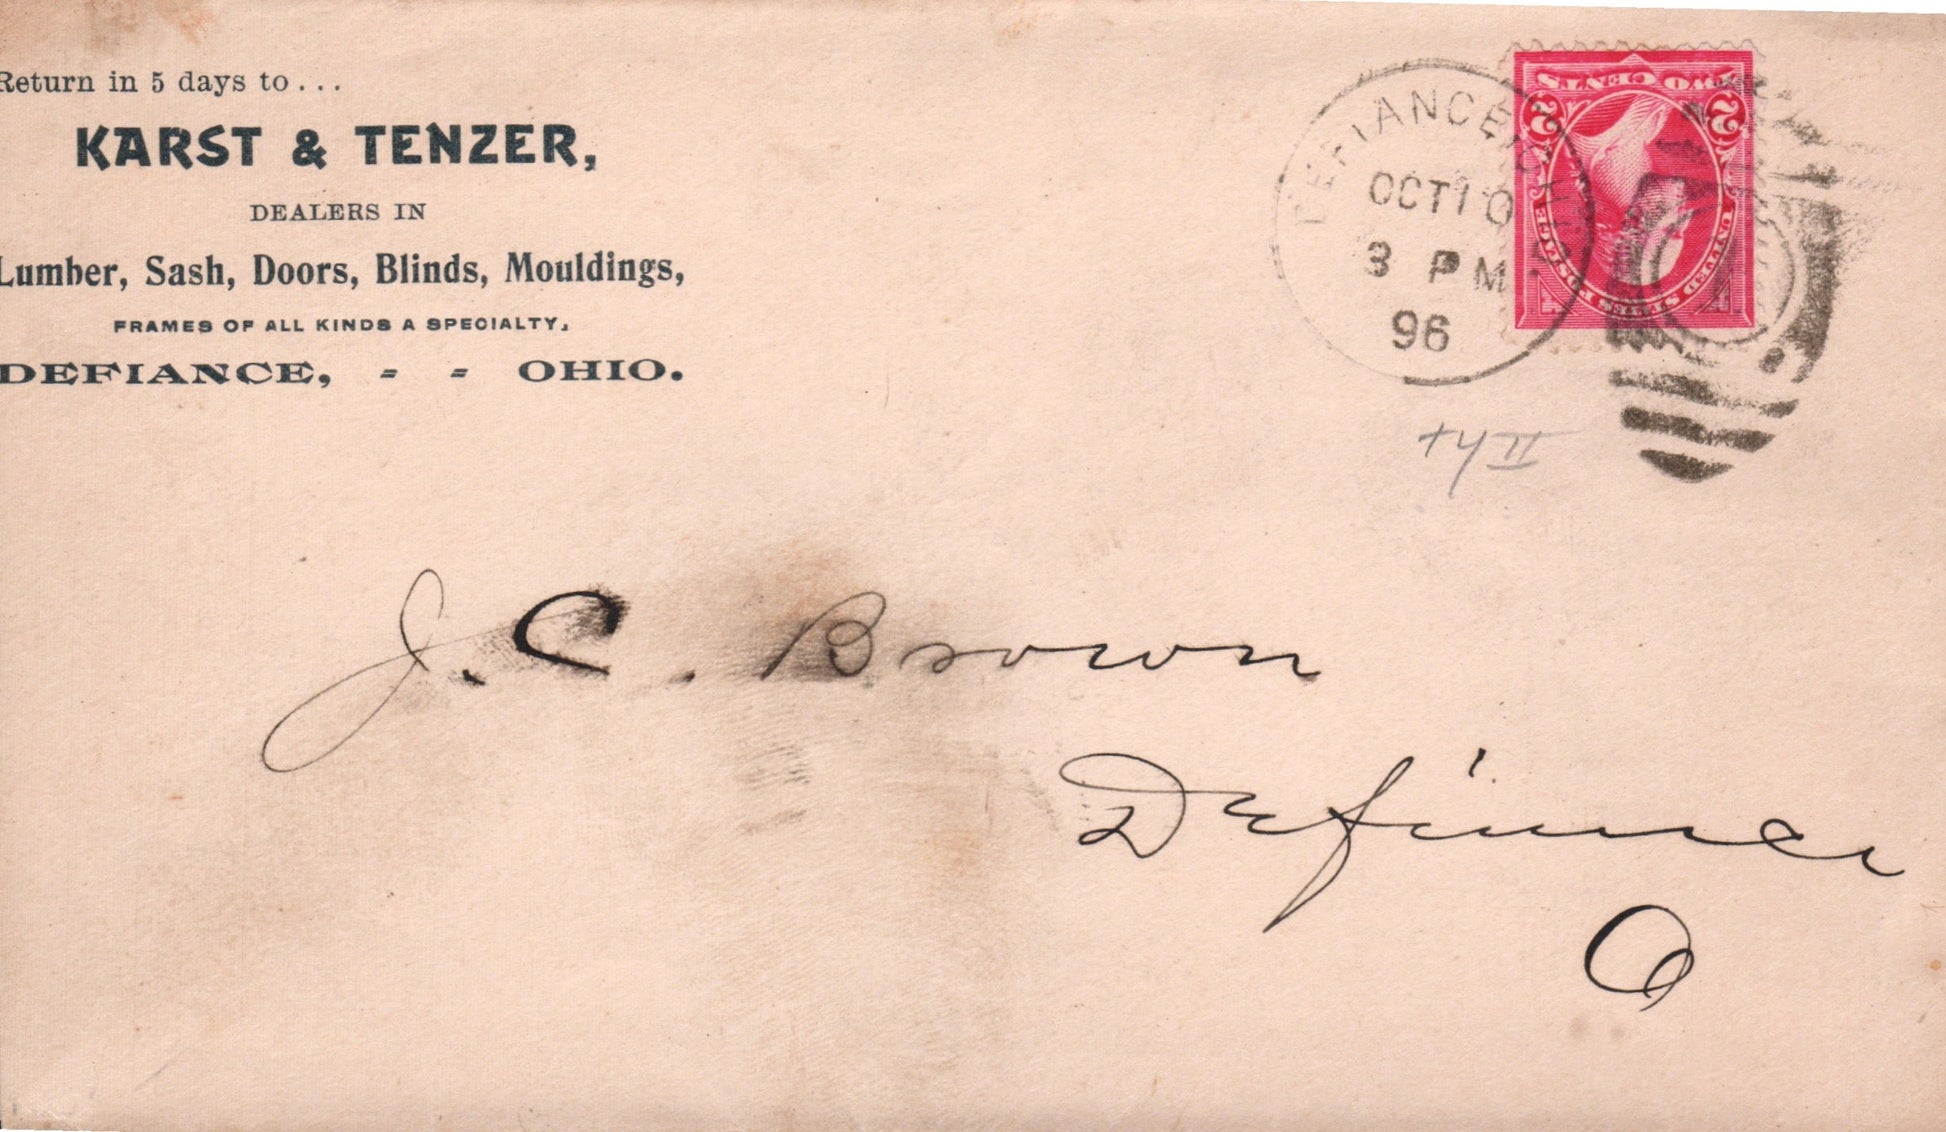 Return in 5 days to...
KARST & TENZER,
DEALERS IN
Lumber, Sash, Doors, Blinds, Mouldings,
FRAMES OF ALL KINDS A SPECIALTY,
DEFIANCE, - - OHIO.
DEFIANCE, OHIO
OCT 10
3 PM
96
TWO CENTS
2 2
UNITED STATES POSTAGE
ty II
J. C. Brown
Defiance
O